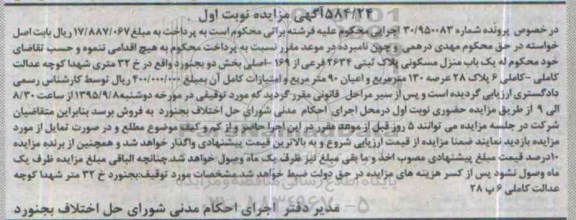 ۵۸۴/۲۴آگهی مزایده نوبت اول
در خصوص پرونده شماره ۳۰/۹۵۰۰۸۳ اجرایی محکوم علیه فرشته براتی محکوم است به پرداخت به مبلغ ۱۷/۸۸۷/۰۶۷ ریال بابت اصل
خواسته در حق محکوم مهدی درهمی و چون نامبرده در موعد مقرر نسبت به پرداخت محکوم به هیچ اقدامی ننموده و حسب تقاضای
خود محکوم له یک باب منزل مسکونی پلاک ثبتی ۲۶۳۴ فرعی از ۱۶۹ -اصلی بخش دو بجنورد واقع در خ ۳۲ متری شهدا کوچه عدالت
کاملی -کاملی ۶ پلاک ۲۸ عرصه ۱۳۰ مترمربع و اعیان ۹۰ متر مربع و امتیازات کامل آن بمبلغ ۴۰۰/۰۰۰/۰۰۰ ریال توسط کارشناس رسمی
دادگستری ارزیابی گردیده است و پس از سیر مراحل قانونی مقرر گردید که مورد توقیفی در مورخه دوشنبه ۱۳۹۵/۹/۸ از ساعت ۸/۳۰
الی ۹ از طریق مزایده حضوری نوبت اول درمحل اجرای احکام مدنی شورای حل اختلاف بجنورد به فروش برسد بنابراین متقاضیان
شرکت در جلسه مزایده می توانند ۵ روز قبل از موعد مقرر در این اجرا حاضر و از کم و کیف موضوع مطلع و در صورت تمایل از مورد
مزایده بازدید نمایند ضمنا مزایده از قیمت ارزیابی شروع و به بالاترین قیمت پیشنهادی واگذار خواهد شد و همچنین از برنده مزایده
۱۰درصد قیمت مبلغ پیشنهادی مصوب اخذ و ما بقی مبلغ نیز ظرف یک ماه وصول خواهد شد.چنانچه الباقی مبلغ مزایده ظرف یک
ماه وصول نشود پس از کسر هزینه های مزایده در حق دولت ضبط خواهد شد.مشخصات مورد توقیف:بجنورد خ ۳۲ متر شهدا کوچه
عدالت کاملی ۶ پ ۲۸
مدیر دفتر اجرای احکام مدنی شورای حل اختلاف بجنورد